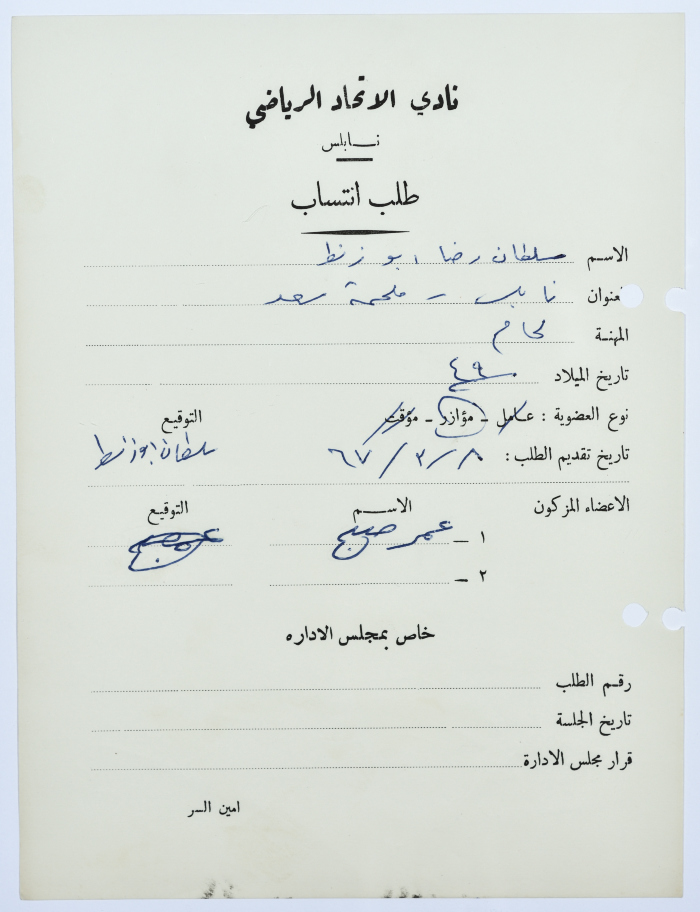 نادي الاتحاد الرياضي
نابلس
طلب انتساب
الاسم سلطان رضا ابو زنط
العنوان نابلس - ملحمة سعد
المهنة محام
تاريخ الميلاد ٤٩
نوع العضوية : عامل - مؤازر - مؤقت التوقيع
تاريخ تقديم الطلب : ٨ / ٣ / ٦٧ سلطان ابو زنط
الاعضاء المزكون الاسم التوقيع
١ - عمر صبح
٢ -
خاص بمجلس الاداره
رقم الطلب
تاريخ الجلسة
قرار مجلس الادارة
امين السر